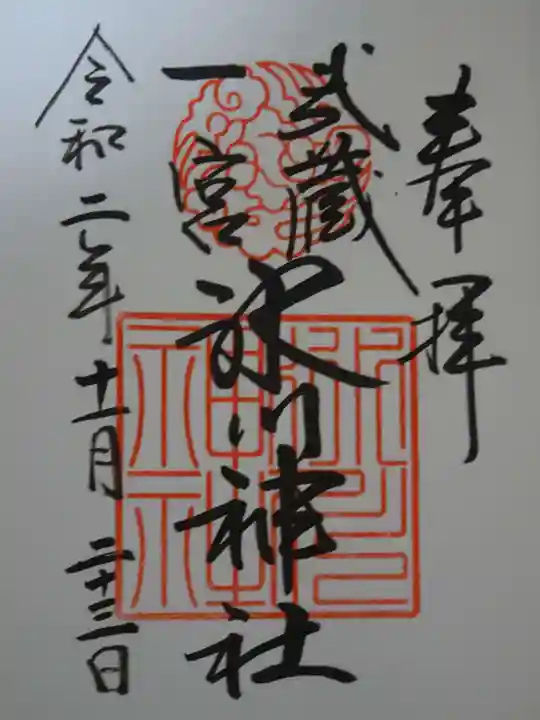 奉拝
武蔵
一宮
氷川神社
令和二年十一月二十三日
氷川神社